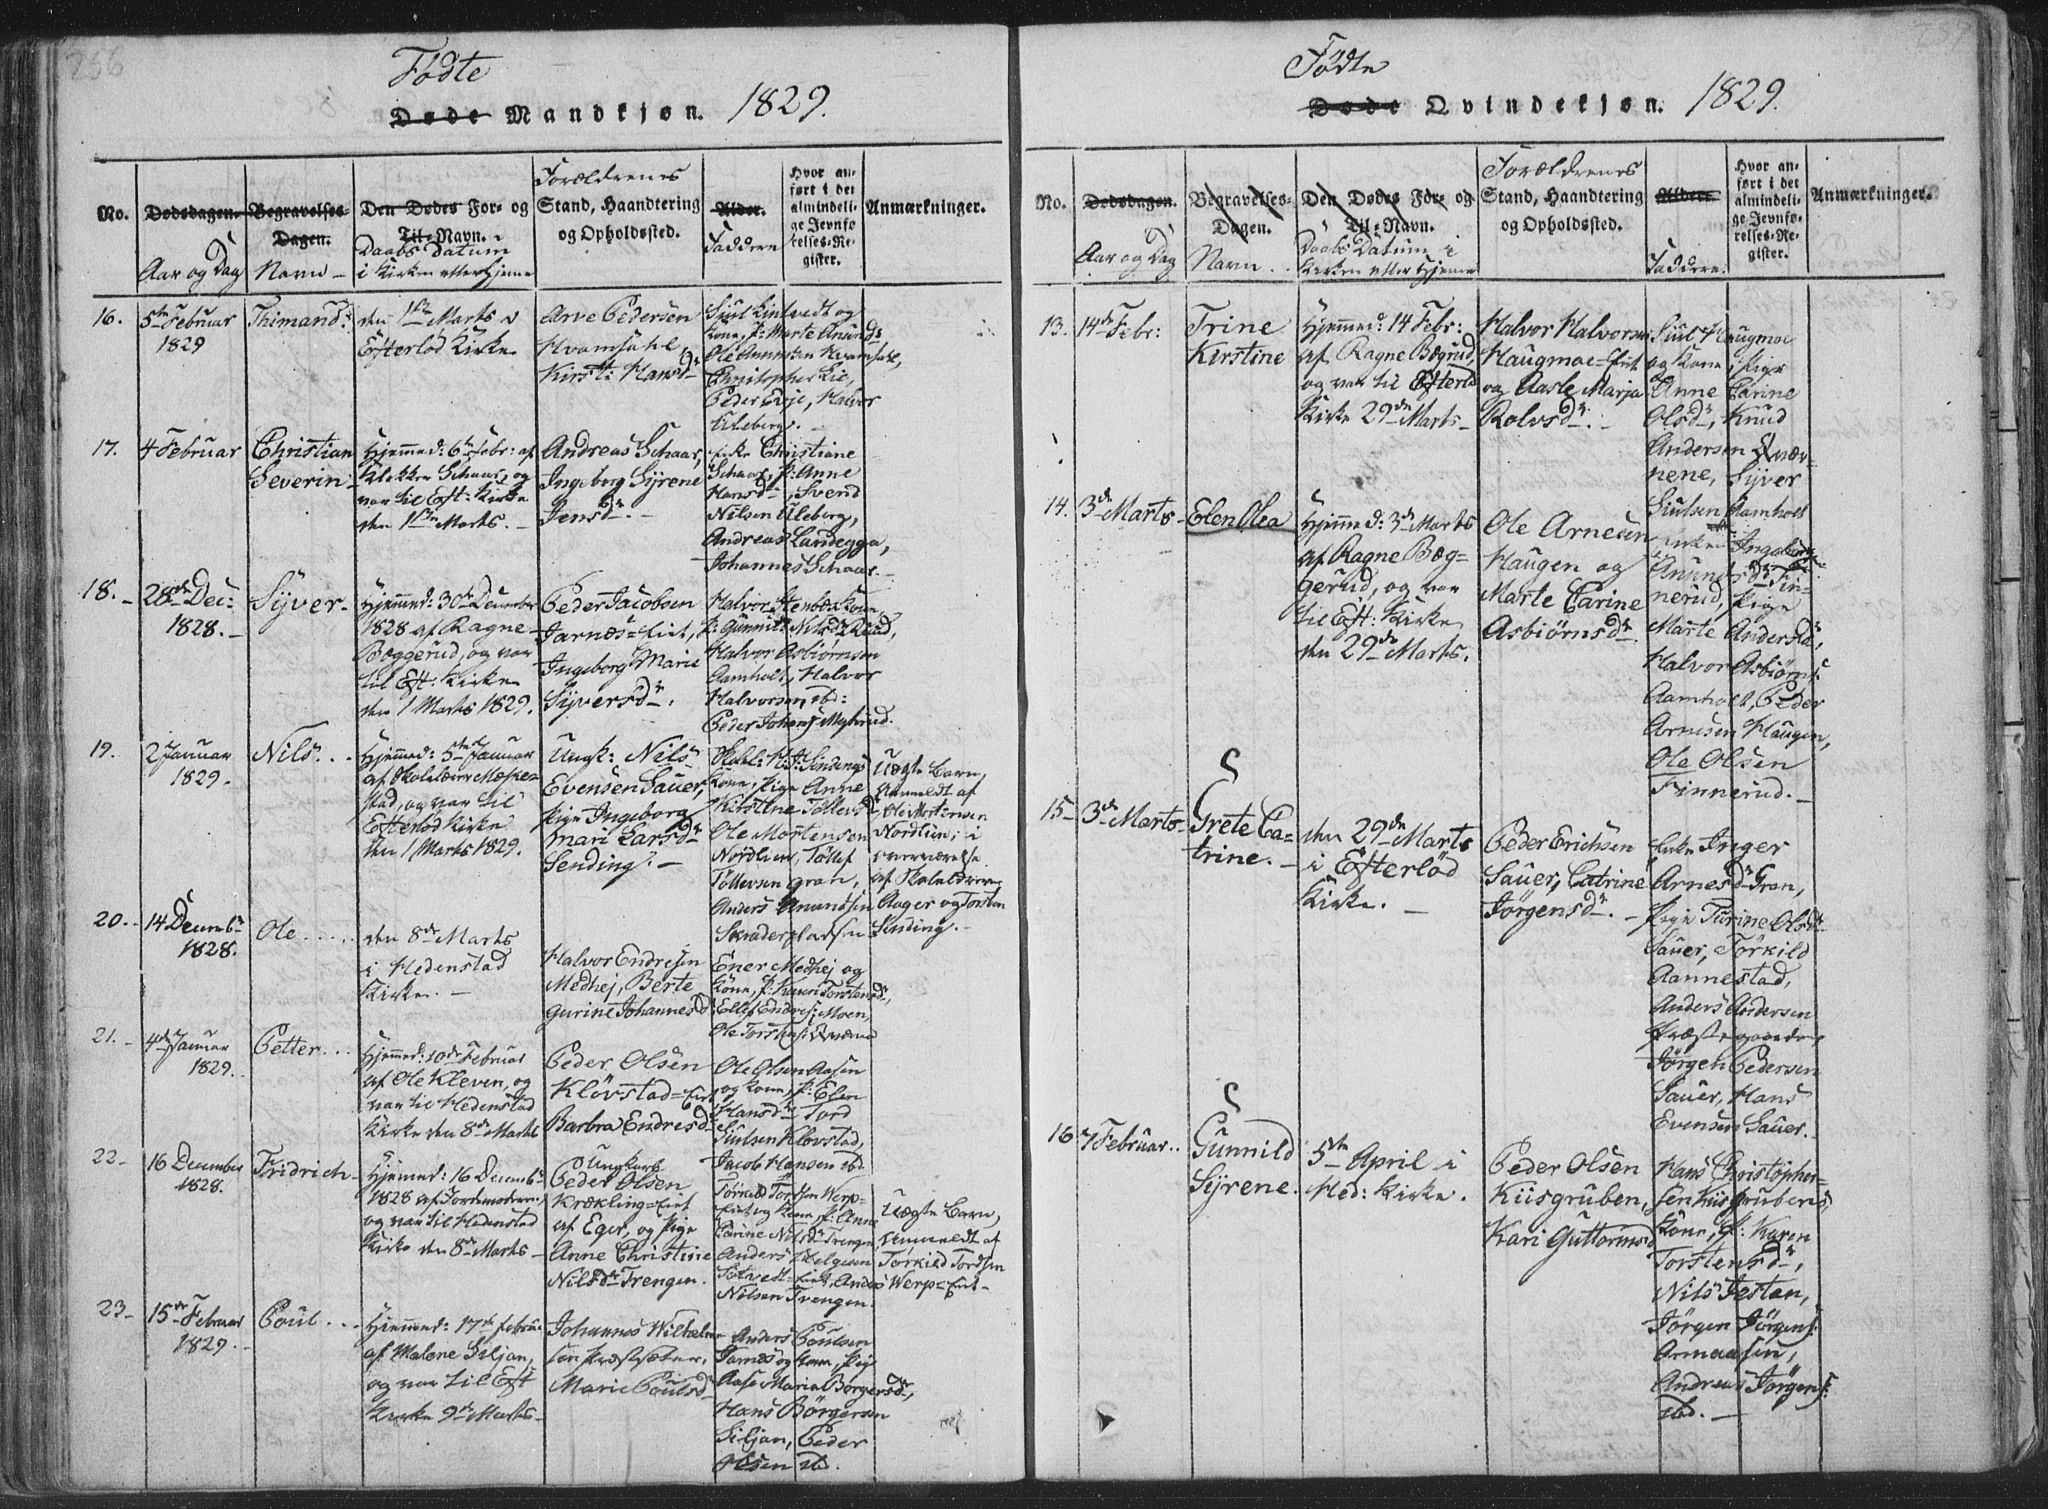 256
Fødte
Døde Mandkjøn. 1829.
No.
Dødsdagen.
Aar og Dag
Begravelses-
Dagen.
Navn
Den Dødes For- og
Til-Navn.
Daabs Datum
i Kirken etter Hjeme
Forældrenes
Stand, Haandtering
og Opholdssted.
Alder.
Faddere
Hvor an-
ført i det
almindeli-
ge Jevnfø-
relses-Re-
gister.
Anmærkninger.
16.
5te Februar
1829
Thimand
den 1ste Marts i
Efterlød Kirke
Arve Pedersen
Hvamsahl,
Kirsti Hansd
Kone, P: Marte
Hvamsahl,
Christopher Lie,
Peder Evje, Halvor
Uleberg.
17.
4 Februar
Christian
Severin
Hjemmed: 6te Febr: af
Klokker Schaar, og
var til Eft: Kirke
den 1ste Marts.
Andreas Schaar,
Ingeborg Syrene
Jensd.
Christiane
Schaar, P: Anne
Hansd, Svend
Nilsen Uleberg,
Andreas Landegga,
Johannes Schaar.
18.
28de Dec:
1828.
Syver
Hjemmed: 30te December
1828 af Ragne
Bæggerud, og var
til Eft: Kirke
den 1 Marts 1829.
Peder Jacobsen
Jarnæs=Eiet,
Ingeborg Marie
Syversd.
Halvor Stenbæk Kone,
Halvor Asbiørnsen
Aamholt, Halvor
Halvorsen ibd:
Peder Johans: Myhrud.
19.
2 Januar
1829.
Nils
Hjemmed: 5te Januar
af Skolelærer Mæhe-
stad, og var til
Efterlød Kirke
den 1 Marts 1829.
Ungk: Nils
Evensen Sauer,
Pige Ingeborg
Mari Larsd
Sending.
Kone, Pige Anne
Kirstine Tollevsd
Ole Mortensen
Nordlien, Tollef
Tollevsen Gran,
Anders Anundsen
Skraderpladsen
Uægte Barn,
Anmeldt af
Ole Mortensen
Nordlien, i
overværelse
af Skolelærer
Aager og Torsten
Sinding.
20.
14 Decemb
1828.
Ole
den 8de Marts
i Hedenstad
Kirke.
Halvor Endresen
Medhej, Berte
Gurine Johannesd
Ener Medhej og
Kone, P: Karen Torstensd,
Ellef Endres: Moen,
Ole Torstens: Qværne
21.
4de Januar
1829.
Petter
Hjemmed: 10de Februar
af Ole Kleven, og
var til Hedenstad
Kirke den 8de Marts
Peder Olsen
Kløvstad=Eiet
Barbra Endresd
Ole Olsen Aasen
og Kone, P: Elen
Hansd, Tord
Siulsen Kløvstad,
Jacob Hansen ibd.
22
16 December
1828.
Fridrich
Hjemmed: 16 Decemb
1828 af Jordemoderen,
og var til Hedenstad
Kirke den 8de Marts
Ungkarl
Peder Olsen
Krækling=Eiet
af Eger, og Pige
Anne Christine
Nilsd Trengen.
Tørkild Tordsen Werp=
Eiet og Kone, P: Anne
Carine Nilsd Trengen
Anders Helgesen
Nilsen Trengen.
Uægte Barn,
anmeldt af
Tørkild Tordsen
Werp=Eiet
23
15de Februar
1829.
Poul
Hjemmed: 17de Februar
af Malene Siljan,
og var til Eft
Kirke 9de Marts
Johannes Wilhelm-
sen Præstsæter,
Marie Poulsd
Anders Poulsen
Jarnæs og Kone, Pig
Aase Maria Borgersd,
Hans Børgersen
Siljan, Peder
Olsen ibd.
Fødte
Døde Qvindekjøn. 1829.
No.
Dødsdagen.
Aar og Dag
Begravelses-
Dagen.
Navn
Den Dødes For- og
Til-Navn.
Daabs Datum i
Kirken eller Hjeme
Forældrenes
Stand, Haandtering
og Opholdssted.
Alder.
Faddere.
Hvor an-
ført i det
almindeli-
ge Jevnfø-
relses-Re-
gister.
Anmærkninger.
13.
14de Febr:
Trine
Kirstine
Hjemmed: 14 Febr:
af Ragne Bægrud,
og var til Efterlød
Kirke 29de Marts
Halvor Halvorsen
Haugmoe=Eiet
og Aasle Marja
Rolvsd.
Siul Haugmoe
og Kone, Pige
Anne Carine
Olsd, Knud
Andersen Qvær-
nene, Syver
Siulsen Aamholt
14.
3de Marts
Elen Olea
Hjemmed: 3de Marts
af Ragne Bæg-
gerud, og var
til Eft: Kirke
den 29de Marts.
Ole Arnesen
Haugen og
Marte Carine
Asbiørnsd
Enken Ingeborg
Anundsd Fin-
nerud, Pige
Marte Andersd,
Halvor Asbiørns:
Aamholt, Peder
Arnesen Haugen,
Ole Olsen
Finnerud.
15
3de Marts
Grete Ca-
trine.
den 29de Marts
i Efterlød
Kirke.
Peder Erichsen
Sauer, Catrine
Jørgensd.
Enke Inger
Arnesd Gran,
Pige Turine Olsd
Sauer, Tørkild
Aannestad,
Anders Andersen
Præstegaarden,
Jørgen Pedersen
Sauer, Hans
Evensen Sauer.
16
7 Februar
Gunnild
Syrene.
5te April i
Hed: Kirke.
Peder Olsen
Kiisgruben,
Kari Guttormsd
Hans Christopher-
sen Kiisgrubens
Kone, P: Karen
Torstensd,
Nils Jestan,
Jørgen Jørgens:
Armaasen,
Andreas Jørgens:
ibd.